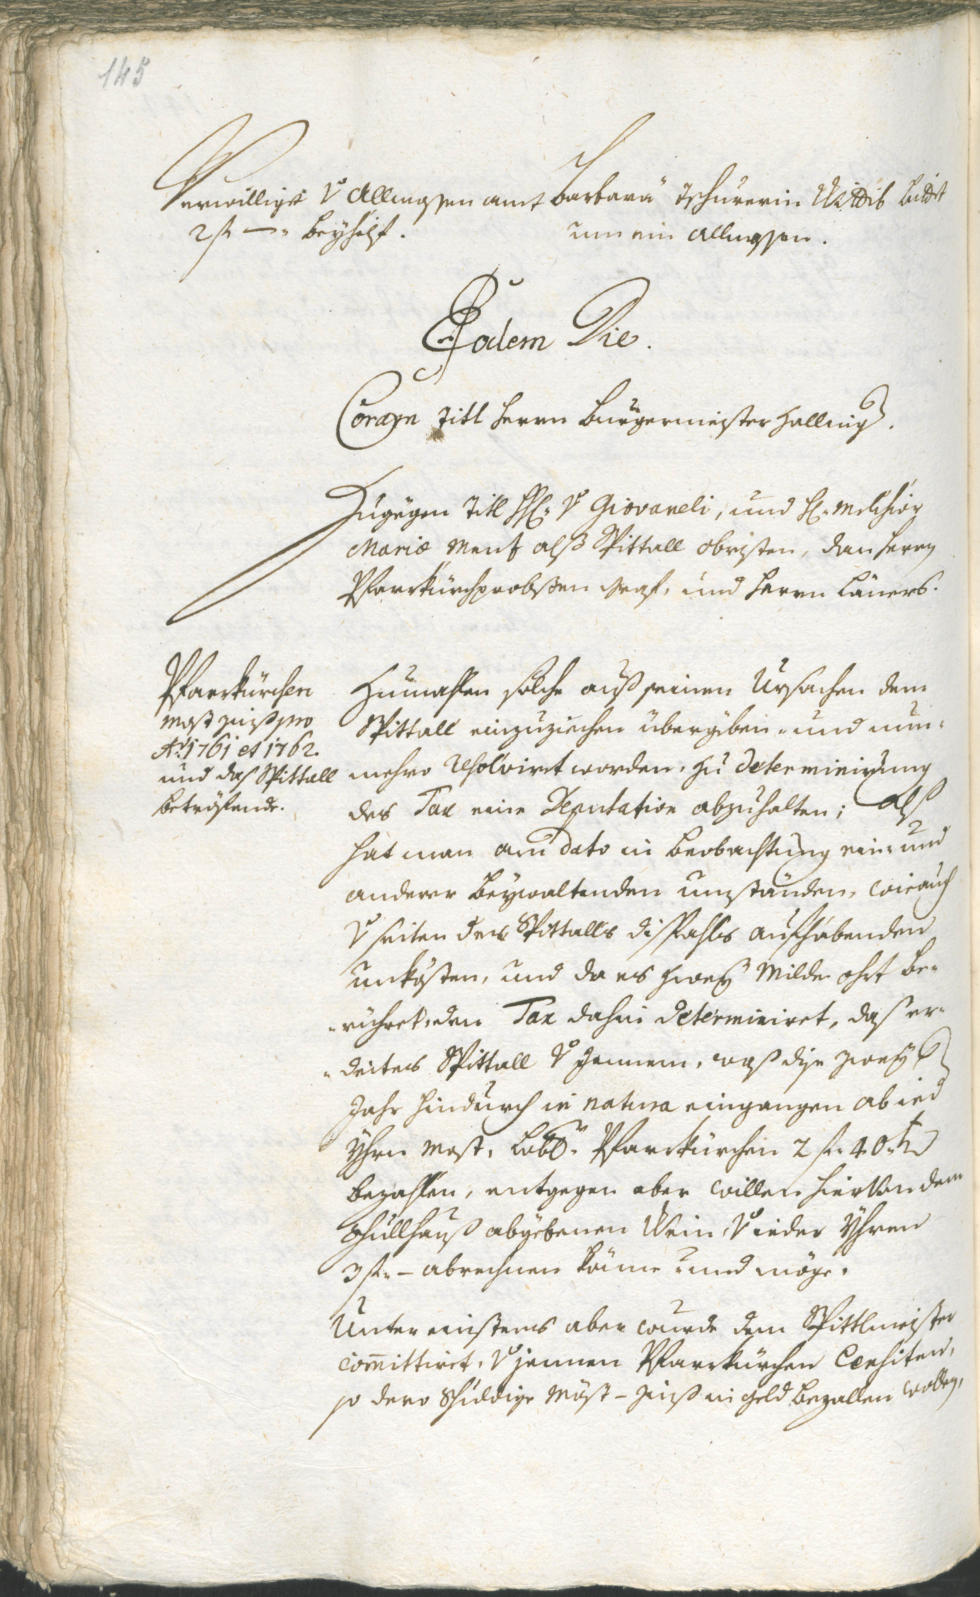 145
Verwilligt v Allmosen amt
2 f — " beyhilf.
Barbara Tschurerin Wittib bittet
um ein Allmosen.
Eadem Die.
Coram Titl Herrn burgermeister Halling.
Zugegen Titl H: v Giovaneli, und H: Melchior
Mariæ Menz alß Spittall obristen, dan Herrn
Pfarrkürchprobsten Graf, und Herrn Läners.
Pfarrkürchen
Most zinß pro
Ao 1761 et 1762.
und daß Spittall
betröfende.
Zumahlen solche auß seinen Ursachen dem
Spittall einzuziechen übergeben- und nun-
mehro resolvirt worden, zu determinirung
des Tax eine Deputation abzuhalten; Alß
hat man anu dato in beobachtung ein- und
anderer beywaltenden umständen, wie auch
v seiten des Spittalls dißfahls aufhabenden
unkösten, und da es zwey Milde ohrt be-
-rühret, den Tax dahin determiniret, daß er-
-deites Spittall v jennem, waß dise zwey
Jahr hindurch in natura eingangen ab ied
Yhrn Most, Lobl: Pfarrkürchen 2 f 40 kr
bezahlen, entgegen aber willen hievon dem
Schullhauß abgebenen Wein v ieder Yhren
3 f — abrechnen könne und möge.
Unter einstens aber wurde dem Spittlmeister
committiret, v jennen Pfarrkürchen Censiten,
so dero schuldige Möst-zinß in geld bezallen wollen,